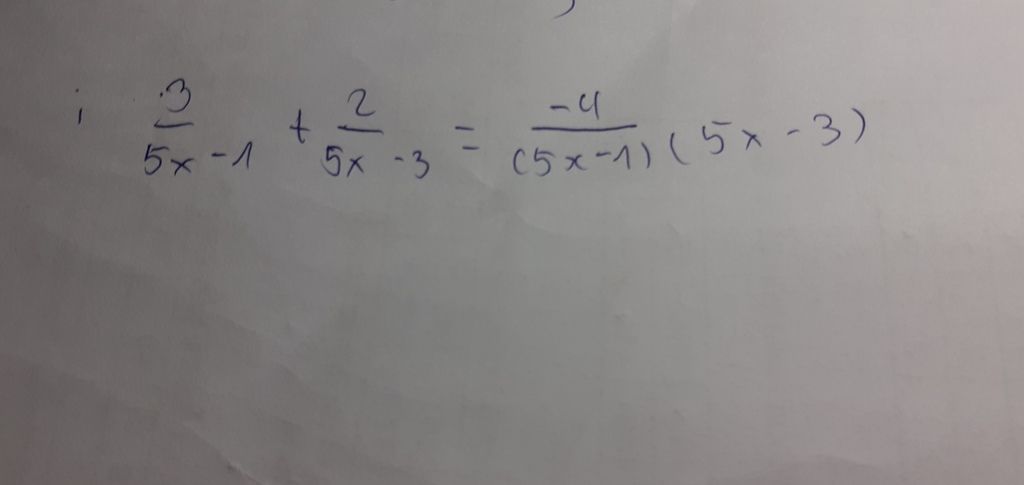 ; 3/(5x-1) + 2/(5x-3) = -4/(5x-1) (5x-3)